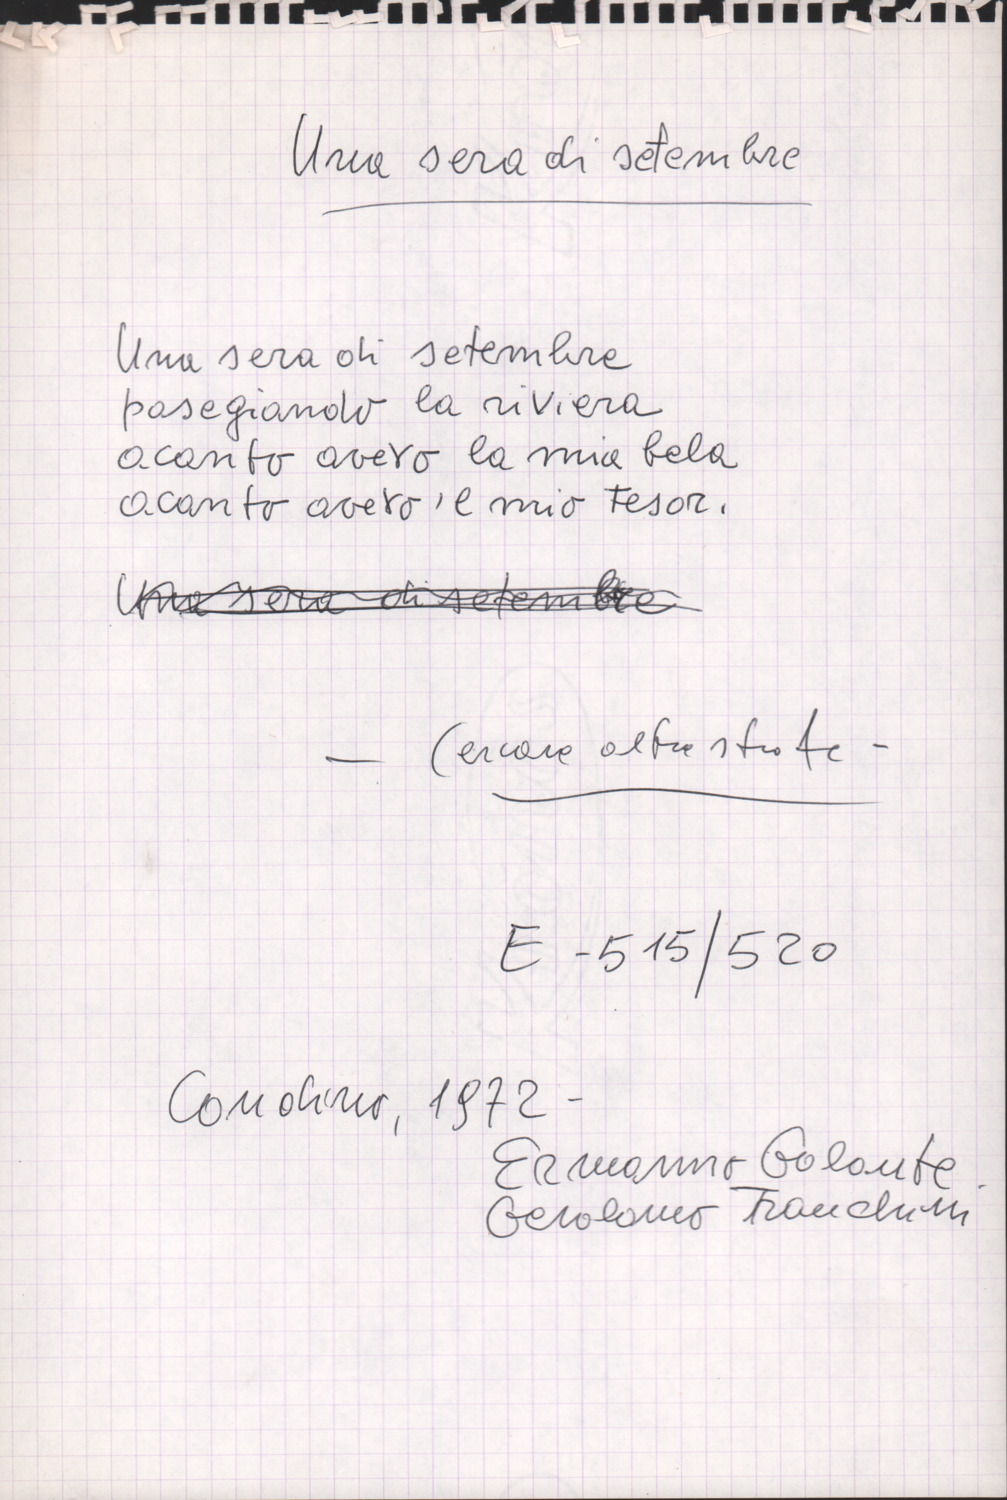 Una sera di setembre
Una sera di setembre
pasegiando la riviera
acanto avero la mia bela
acanto avero 'l mio tesor.
Una sera di setembre
— Cercare altre strofe -
E - 515/520
Condino, 1972 -
Ermanno Galante
Gerolamo Franchini